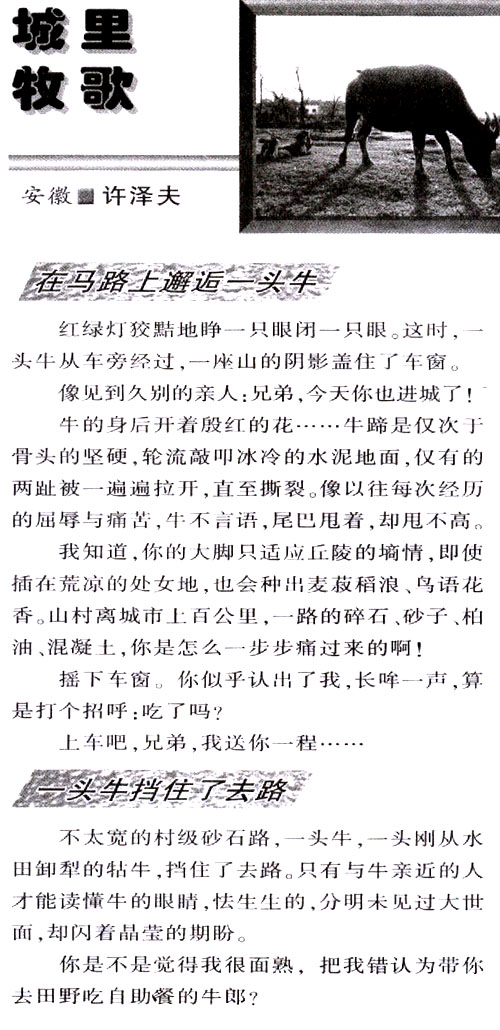 城里
牧歌
安徽■许泽夫
在马路上邂逅一头牛
红绿灯狡黠地睁一只眼闭一只眼。这时,一
头牛从车旁经过,一座山的阴影盖住了车窗。
像见到久别的亲人:兄弟,今天你也进城了!
牛的身后开着殷红的花……牛蹄是仅次于
骨头的坚硬,轮流敲叩冰冷的水泥地面,仅有的
两趾被一遍遍拉开,直至撕裂。像以往每次经历
的屈辱与痛苦,牛不言语,尾巴甩着,却甩不高。
我知道,你的大脚只适应丘陵的墒情,即使
插在荒凉的处女地,也会种出麦菽稻浪、鸟语花
香。山村离城市上百公里,一路的碎石、砂子、柏
油、混凝土,你是怎么一步步痛过来的啊!
摇下车窗。你似乎认出了我,长哞一声,算
是打个招呼:吃了吗?
上车吧,兄弟,我送你一程……
一头牛挡住了去路
不太宽的村级砂石路,一头牛,一头刚从水
田卸犁的牯牛,挡住了去路。只有与牛亲近的人
才能读懂牛的眼睛,怯生生的,分明未见过大世
面,却闪着晶莹的期盼。
你是不是觉得我很面熟,把我错认为带你
去田野吃自助餐的牛郎?